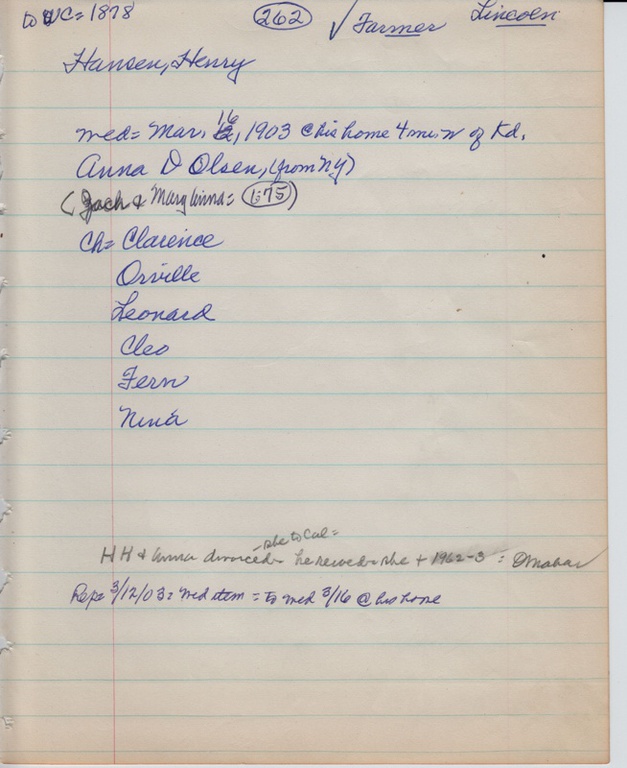 to WC = 1878 262 ✓ Farmer Lincoln
Hansen, Henry
med = Mar. 16, 1903 @ his home 4 mi. N of Kd.
Anna D Olsen, (from NY)
(Jack & Mary Anna = 1575)
Ch = Clarence
Orville
Leonard
Cleo
Fern
Nina
- she to Cal =
HH & Anna divorced - he rewed - she + 1962-3 = Omaha ✓
Rep = 3/12/03 = wed item = to wed 3/16 @ his home